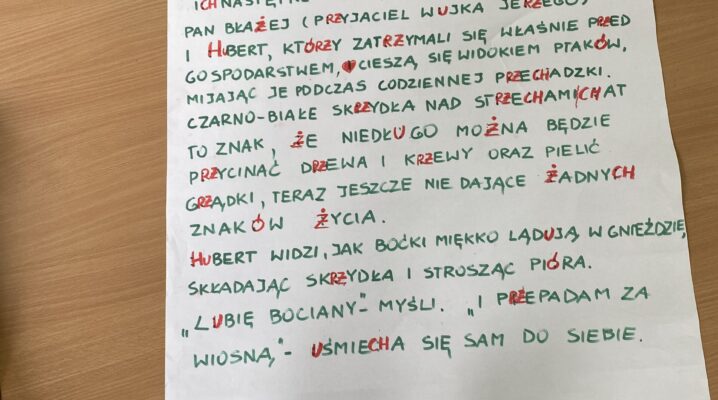 ICH NASTĘ
PAN BŁAŻEJ (PRZYJACIEL WUJKA JERZEGO)
I HUBERT, KTÓRZY ZATRZYMALI SIĘ WŁAŚNIE PRZED
GOSPODARSTWEM, CIESZĄ SIĘ WIDOKIEM PTAKÓW,
MIJAJĄC JE PODCZAS CODZIENNEJ PRZECHADZKI.
CZARNO-BIAŁE SKRZYDŁA NAD STRZECHAMI CHAT
TO ZNAK, ŻE NIEDŁUGO MOŻNA BĘDZIE
PRZYCINAĆ DRZEWA I KRZEWY ORAZ PIELIĆ
GRZĄDKI, TERAZ JESZCZE NIE DAJĄCE ŻADNYCH
ZNAKÓW ŻYCIA.
HUBERT WIDZI, JAK BOĆKI MIĘKKO LĄDUJĄ W GNIEŹDZIE,
SKŁADAJĄC SKRZYDŁA I STROSZĄC PIÓRA.
„LUBIĘ BOCIANY"- MYŚLI. „I PRZEPADAM ZA
WIOSNĄ,"- UŚMIECHA SIĘ SAM DO SIEBIE.